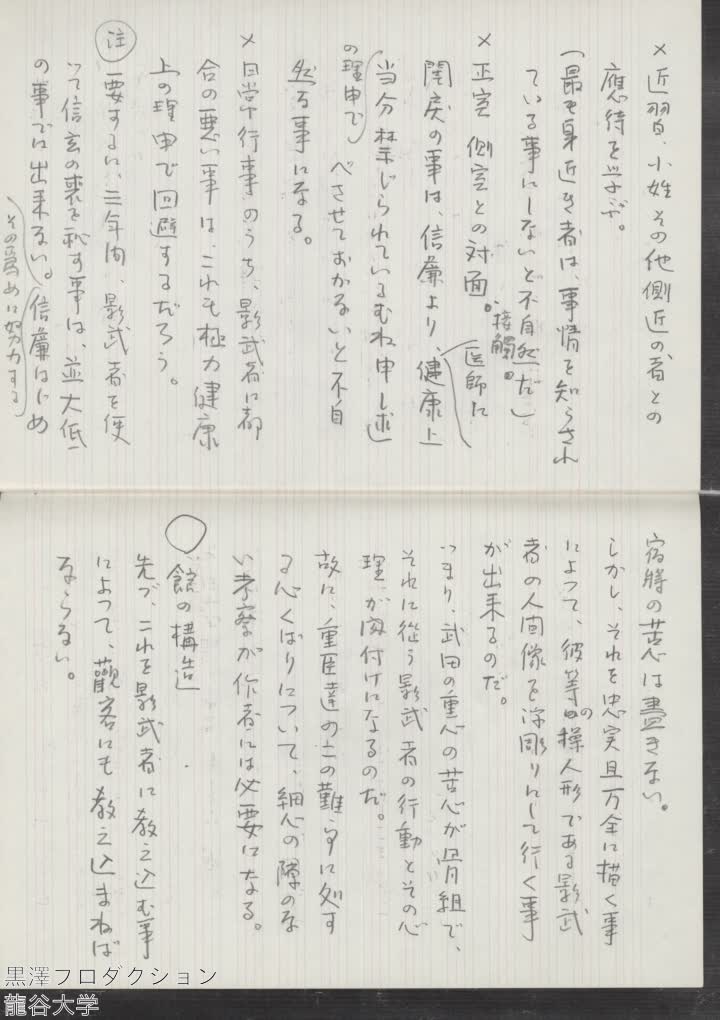 ×近習、小姓その他側近の者との
應待を学ぶ。
(最も身近き者は、事情を知らされ
ている事にしないと不自然だ)
×正室 側室との対面。
接觸。
医師に
閨房の事は、信廉より、健康上
の理由で
当分禁じられているむね申し述
べさせておかないと不自
然な事になる。
×日常行事のうち、影武者に都
合の悪い事は、これも極力健康
上の理由で回避するだろう。
注
要するに、三年内、影武者を使
って信玄の喪を秘す事は、並大低
の事では出来ない。信廉はじめ
その為めに努力する
宿將の苦心は盡きない。
しかし、それを忠実且万全に描く事
によって、彼等の操人形である影武
者の人間像を浮彫りにして行く事
が出来るのだ。
つまり、武田の重心の苦心が骨組で、
それに從う影武者の行動とその心
理が肉付けになるのだ。
故に、重臣達のこの難局に処す
る心くばりについて、細心の隙のな
い考察が作者には必要になる。
○館の構造
先づ、これを影武者に教え込む事
によって、觀客にも教え込まねば
ならない。
黒澤プロダクション
龍谷大学